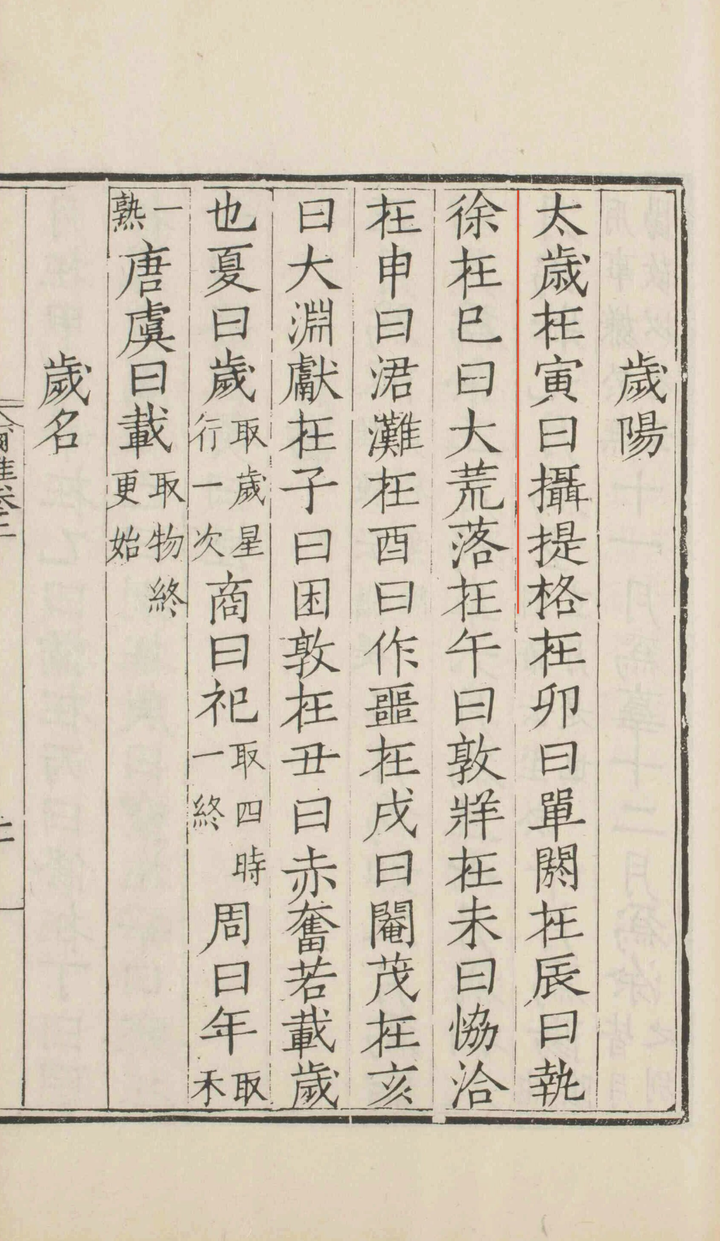 歲陽
太歳在寅曰攝提格在卯曰單閼在辰曰執
徐在巳曰大荒落在午曰敦牂在未曰恊洽
在申曰涒灘在酉曰作噩在戌曰閹茂在亥
曰大淵獻在子曰困敦在丑曰赤奮若載歲
也夏曰歲取歲星行一次商曰祀取四時一終周曰年取禾
一熟唐虞曰載取物終更始
歲名